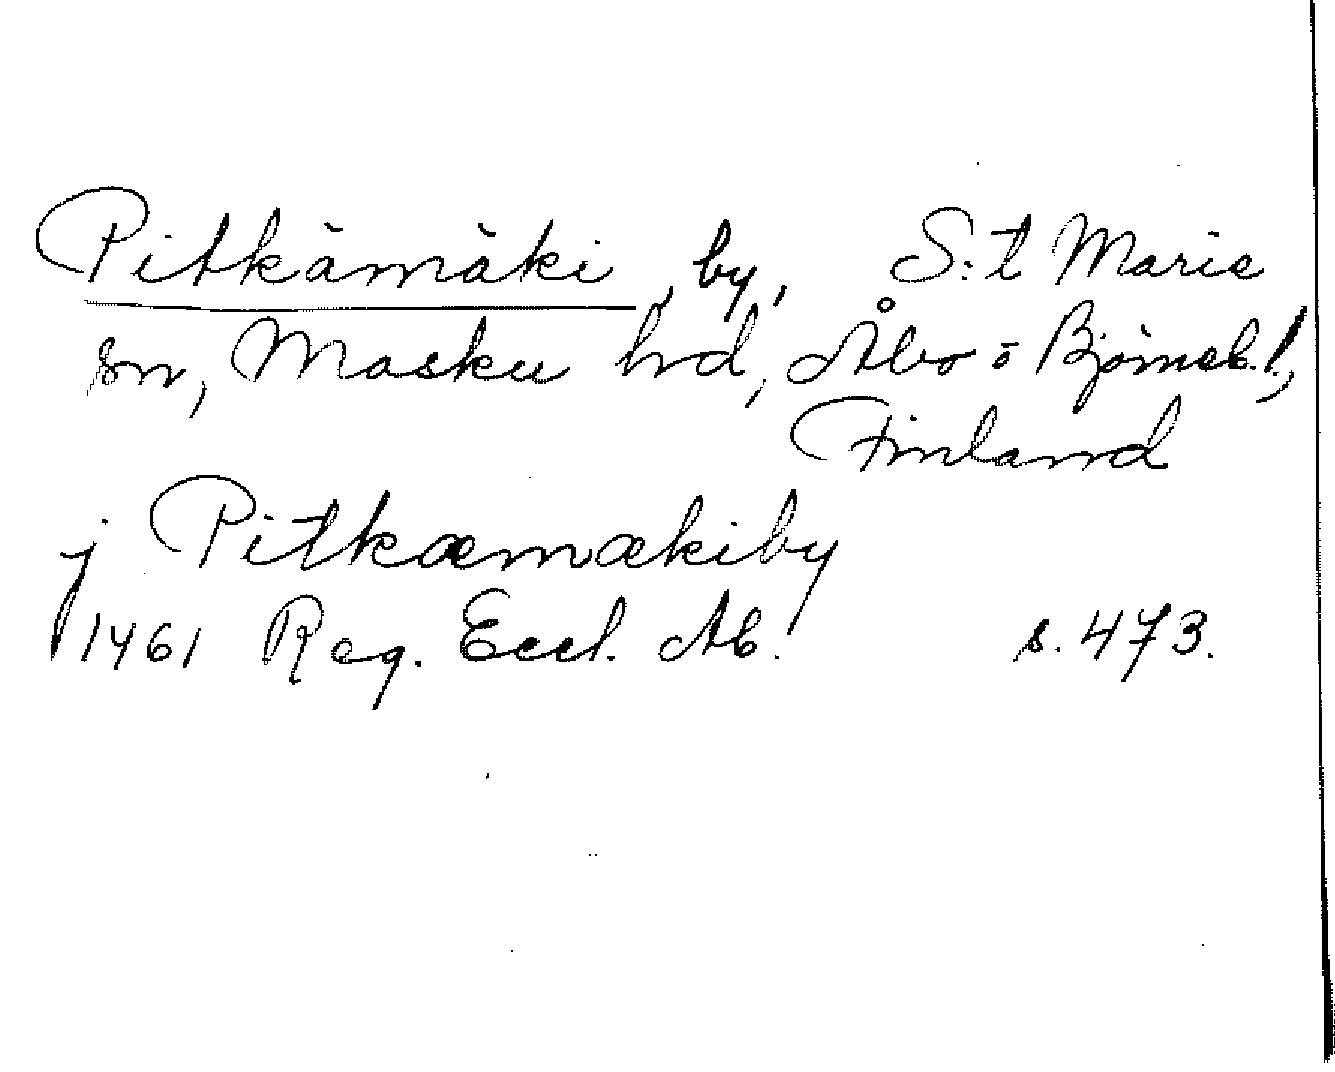 Pitkämäki, by, S:t Marie
sn, Masku hd, Åbo o Björneb. l.,
Finland
j Pitkæmækiby
1461 Reg. Eccl. Ab. s. 473.